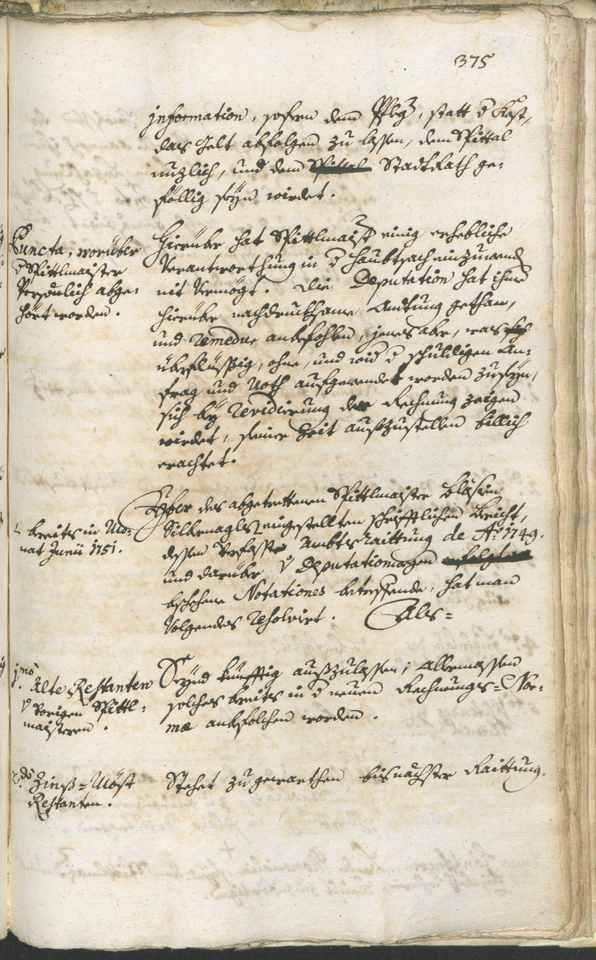 375
Information, sofern dem Pfleg, statt d Kost,
das Gelt abfolgen zu lassen, dem Spittal
nuzlich, und dem Spittal StadtRath ge-
föllig seyn wirdet.
Puncta, worüber
d Spittlmaister
Persönlich abge-
hört worden.
Hierüber hat Spittlmaistr einig erhebliche
Verantworthung in d Haubtsach einzuwend
nit vermögt. Die Deputation hat ihme
hierüber nachdruckhsame Andtung gethan,
und Remedur anbefohlen, jenes aber, was
überflüssig, ohne, und wid d schuldigen An-
frag und Noth aufgewendet worden zu seyn,
sich bey Revidierung der Rechnung zeigen
wirdet, seiner Zeit aufzustellen billich
erachtet.
bereits in Mo-
nat Junii 1751.
Über des abgetrettenen Spittlmaister Blasien
Silbernagls eingestellten schrifftlichen Bericht,
dessen verfasste Ambts Raittung de Ao 1749.
und darüber Deputationwegen
beschehene Notationes betreffende, hat man
volgendes resolvirt. Als=
1mo
Alte Restanten
d vorigen Spittl-
maisteren.
Seynd künfftig außzulassen; Allermassen
solches bereits in d neuen Rechnungs=Nor-
ma anbefolchen worden.
2do Zinß=Möst
Restanten.
Stehet zu gewarthen bis nächster Raittung.